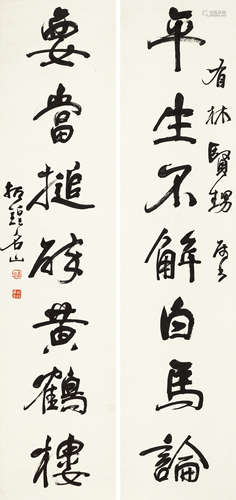 有林賢甥
平生不解白馬論
要當搥碎黃鶴樓
振鍠名山